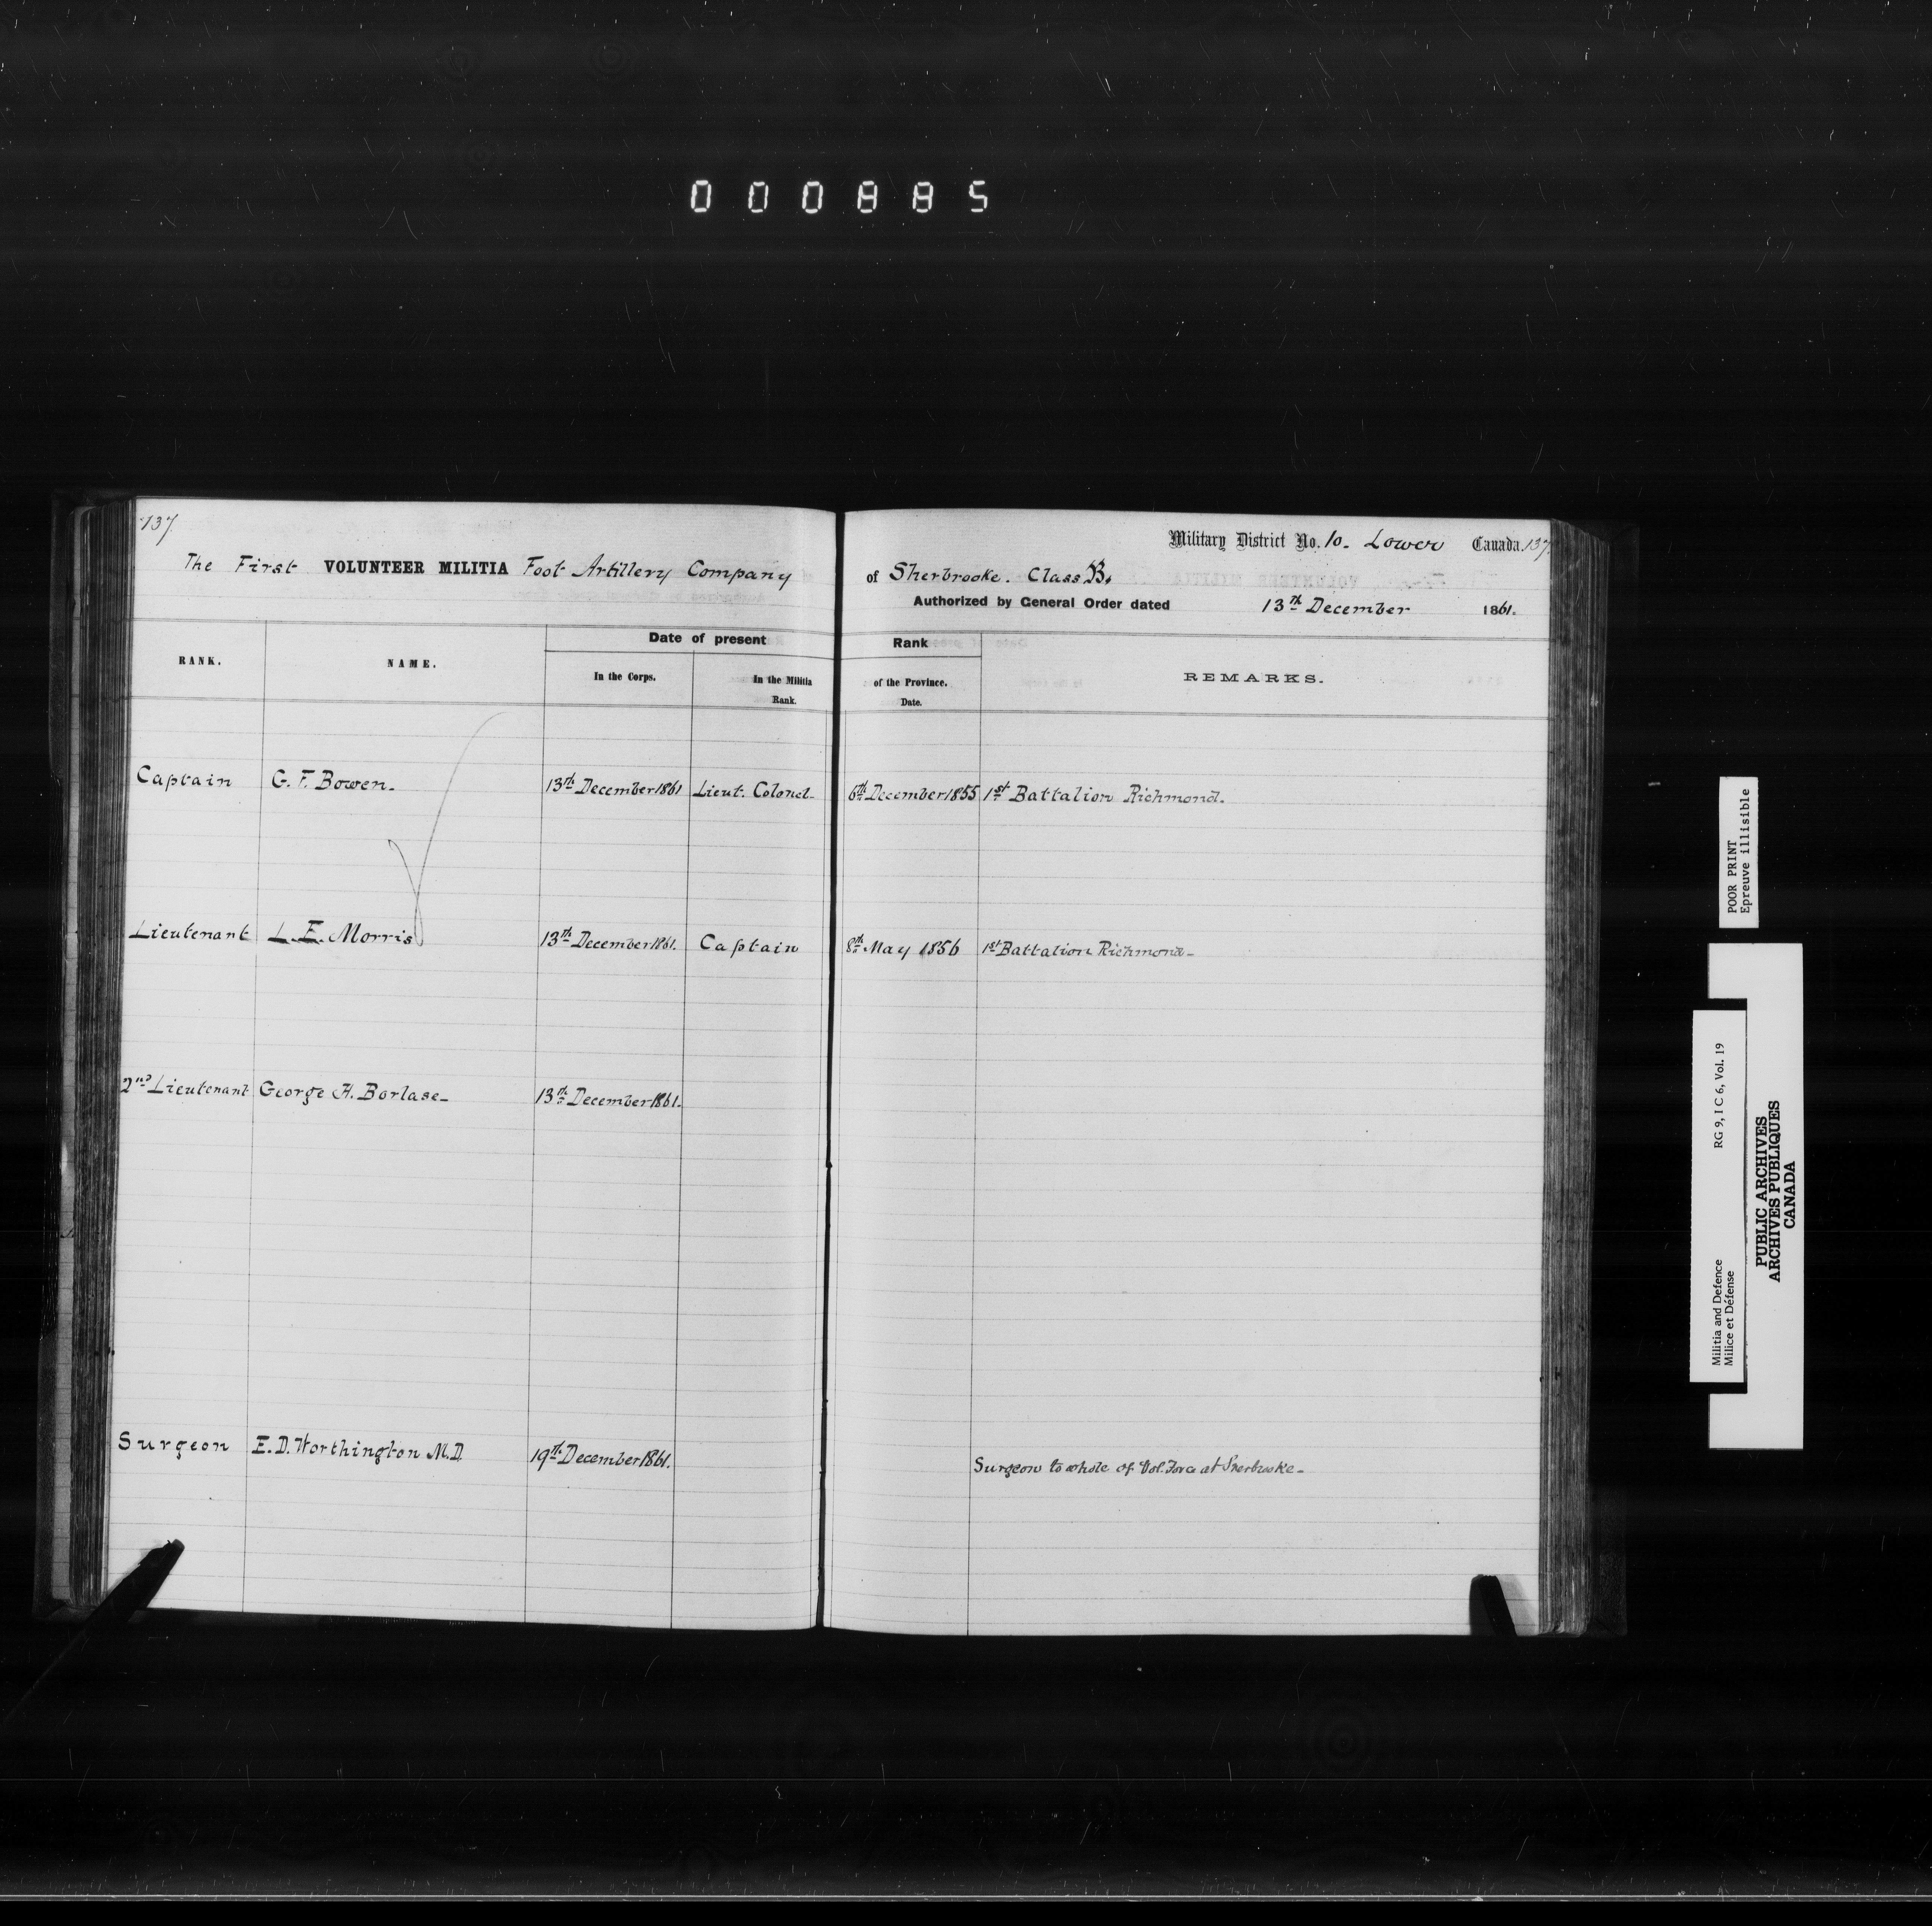 000885
137.
Military District No. 10. Lower Canada. 137.
The First VOLUNTEER MILITIA Foot Artillery Company of Sherbrooke. Class B.
Authorized by General Order dated 13th December 1861.
Date of present Rank
RANK. NAME. In the Corps. In the Militia of the Province. REMARKS.
Rank. Date.
Captain G. F. Bowen. 13th December 1861 Lieut. Colonel 6th December 1855 1st Battalion Richmond.
Lieutenant L. E. Morris 13th December 1861. Captain 8th May 1856 1st Battalion Richmond
2nd Lieutenant George H. Borlase 13th December 1861.
Surgeon E. D. Worthington M.D. 19th December 1861. Surgeon to whole of Vol. Force at Sherbrooke
POOR PRINT
Epreuve illisible
RG 9, I C 6, Vol. 19
Militia and Defence
Milice et Défense
PUBLIC ARCHIVES
ARCHIVES PUBLIQUES
CANADA